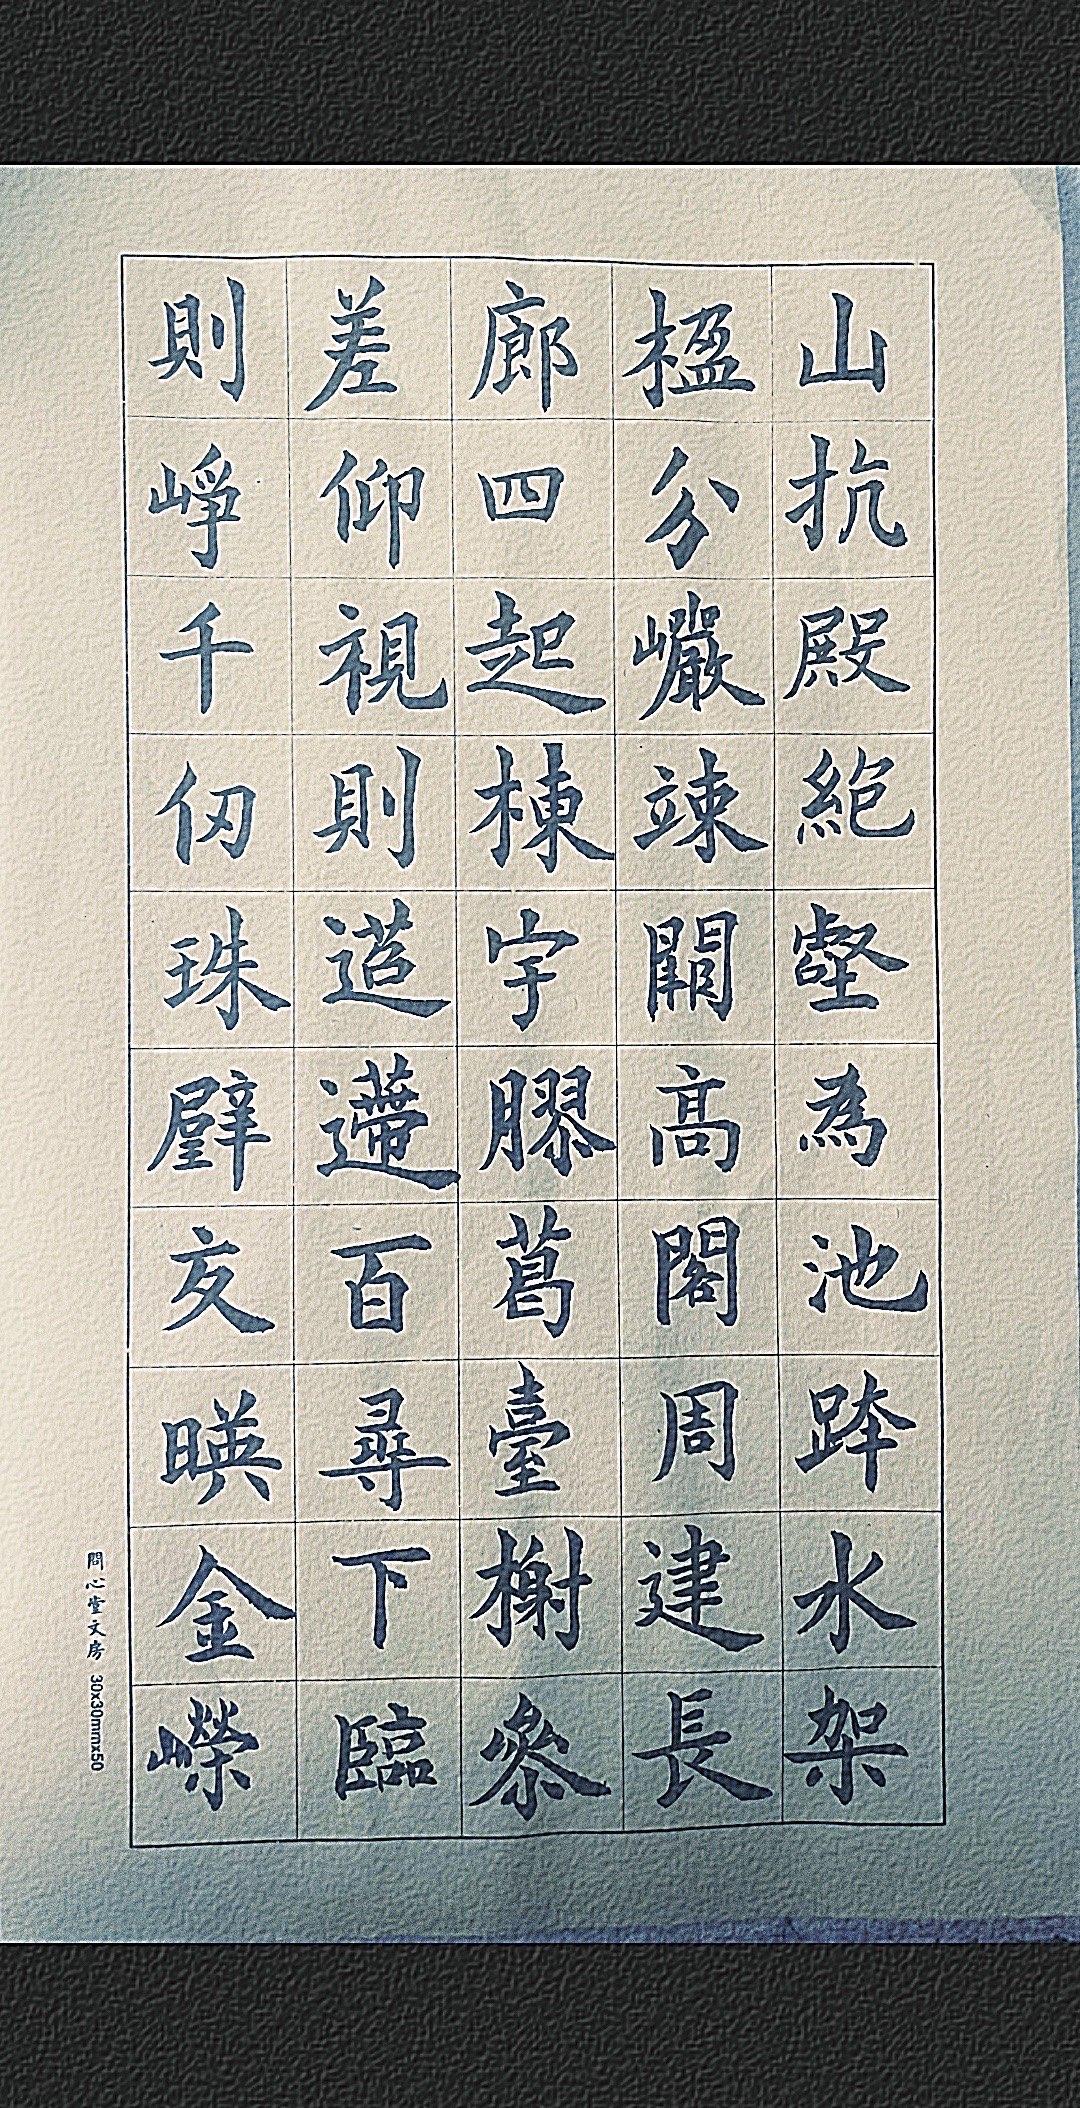 山抗殿絶壑為池跨水架
楹分巖竦闕高閣周建長
廊四起棟宇膠葛臺榭參
差仰視則迢遰百尋下臨
則崢嶸千仞珠璧交暎金
問心堂文房 30x30mmx50